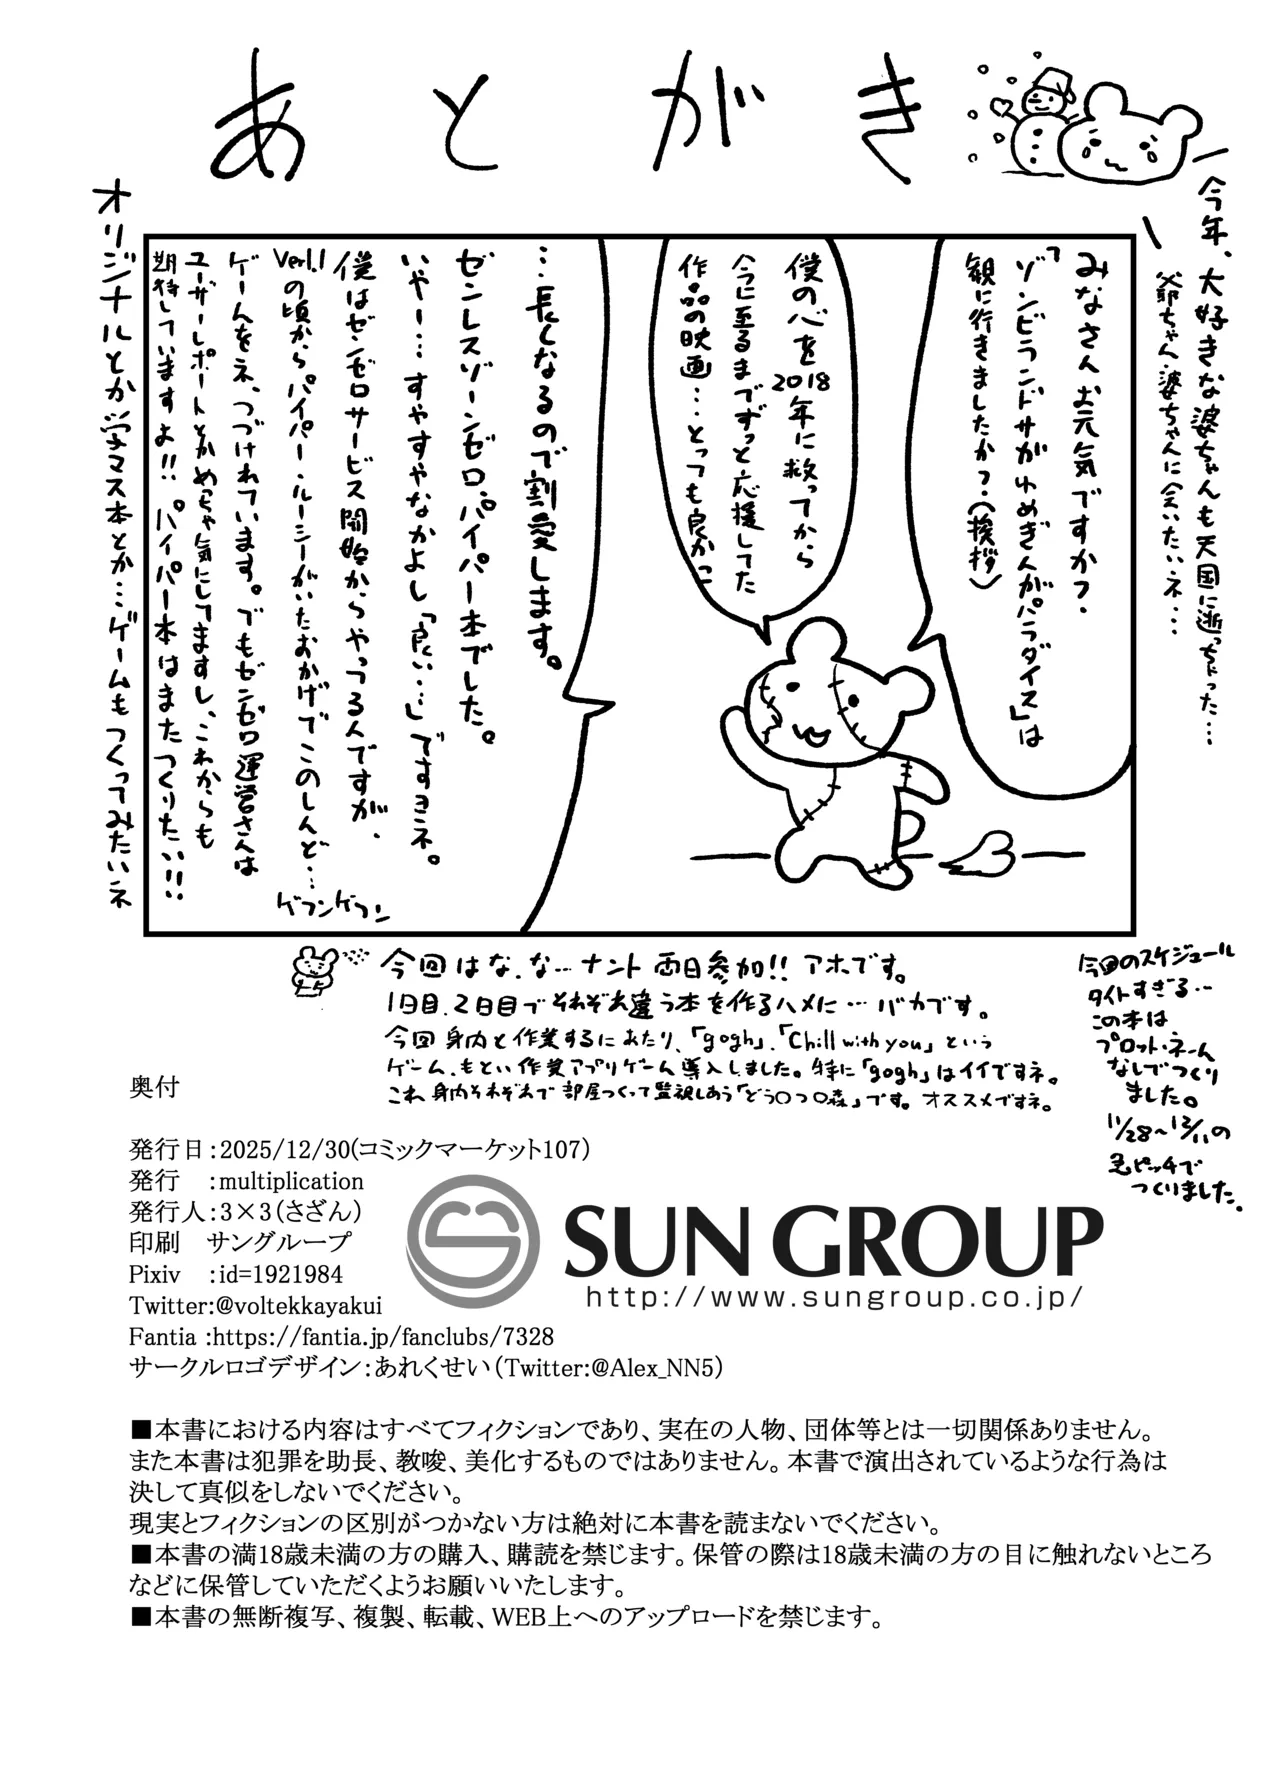 あとがき
今年、大好きな婆ちゃんも天国に逝っちゃった…
爺ちゃん・婆ちゃんに会いたいネ…
みなさんお元気ですか？
「ゾンビランドサガゆめぎんがパラダイス」は
観に行きましたか？(挨拶)
僕の心を2018年に救ってから
今に至るまでずっと応援してた
作品の映画…とっても良かっ
…長くなるので割愛します。
ゼンレスゾーンゼロ、パイパー本でした。
いやー…すやすやなかよし「良い…」ですヨネ。
僕はゼンゼロサービス開始からやってる人ですが、
Ver1.1の頃からパイパー・ルーシーがいたおかげでこのしんど…
ゲフンゲフン
ゲームをネ、つづけれています。でもゼンゼロ運営さんは
ユーザーレポートとかめっちゃ気にしてますし、これからも
期待していますよ!!パイパー本はまたつくりたい!!
オリジナルとか学マス本とか…ゲームもつくってみたいネ
今回はな、な…ナント両日参加!!アホです。
1日目、2日目でそれぞれ違う本を作るハメに…バカです。
今回身内と作業するにあたり、「gogh」、「Chill with you」という
ゲーム、もとい作業アプリゲーム導入しました。特に「gogh」はイイですネ。
これ身内それぞれで部屋つくって監視しあう「どう○つ○森」です。オススメですネ。
今回のスケジュール
タイトすぎる…
この本は
プロット・ネーム
なしでつくり
ました。
11/28〜12/11の
急ピッチで
つくりました。
奥付
発行日:2025/12/30(コミックマーケット107)
発行　:multiplication
発行人:3×3(さざん)
印刷　サングループ
Pixiv　:id=1921984
Twitter:@voltekkayakui
Fantia :https://fantia.jp/fanclubs/7328
サークルロゴデザイン:あれくせい(Twitter:@Alex_NN5)
SUN GROUP
http://www.sungroup.co.jp/
■本書における内容はすべてフィクションであり、実在の人物、団体等とは一切関係ありません。
また本書は犯罪を助長、教唆、美化するものではありません。本書で演出されているような行為は
決して真似をしないでください。
現実とフィクションの区別がつかない方は絶対に本書を読まないでください。
■本書の満18歳未満の方の購入、購読を禁じます。保管の際は18歳未満の方の目に触れないところ
などに保管していただくようお願いいたします。
■本書の無断複写、複製、転載、WEB上へのアップロードを禁じます。